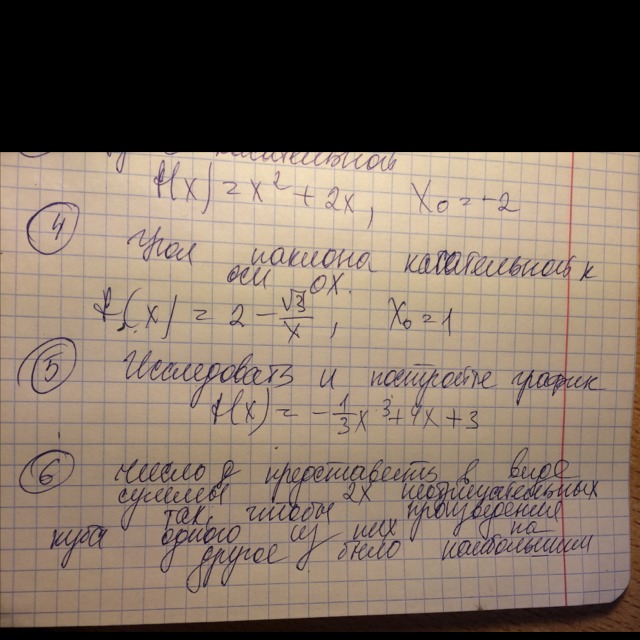 касательной
f(x) = x² + 2x, x₀ = -2
④ Угол наклона касательной к
оси OX.
f(x) = 2 - √3/x, x₀ = 1
⑤ Исследовать и построить график
f(x) = -1/3x³ + 4x + 3
⑥ Число представить в виде
суммы 2х неотрицательных
так, чтобы произведение
куба одного из них на
другое было наибольшим